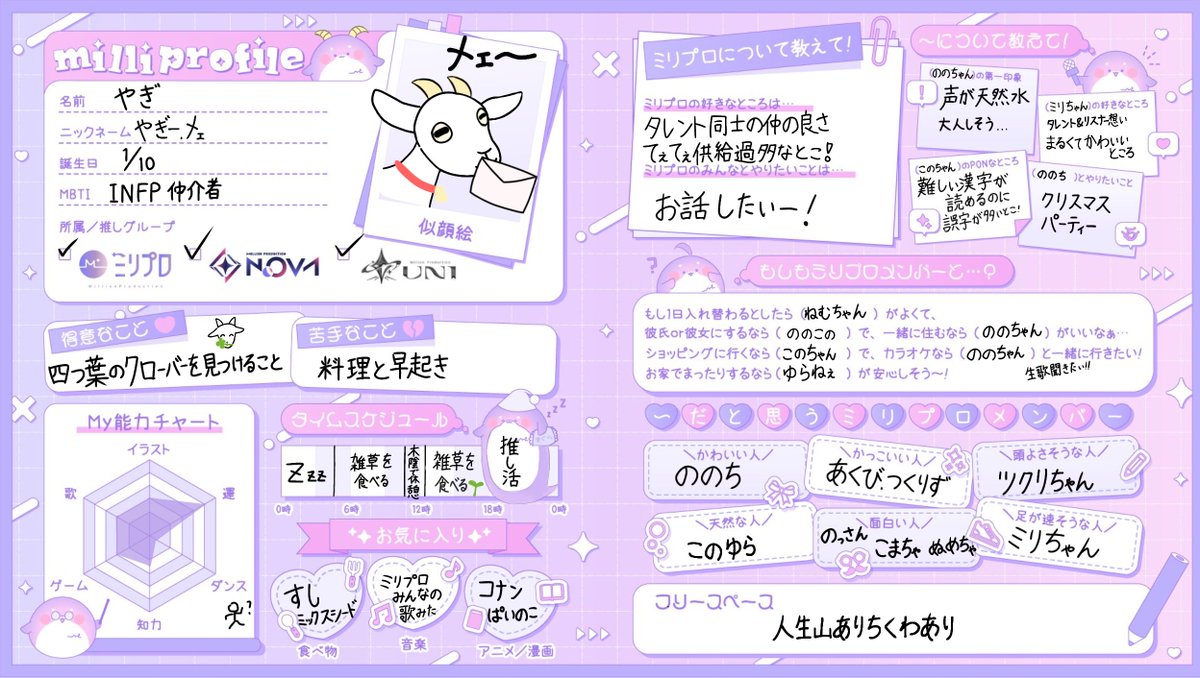 milli profile
名前 やぎ
ニックネーム やぎー.メェ
誕生日 1/10
MBTI INFP 仲介者
所属／推しグループ
ミリプロ
MILLION PRODUCTION
NOVA
UNI
メェ〜
似顔絵
得意なこと
四つ葉のクローバーを見つけること
苦手なこと
料理と早起き
My能力チャート
イラスト
歌
運
ゲーム
ダンス
知力
?
タイムスケジュール
Zzz
雑草を
食べる
木陰で休憩
雑草を
食べる
推し活
zzz
0時 6時 12時 18時 0時
お気に入り
すし
ミックスシード
食べ物
ミリプロ
みんなの
歌みた
音楽
コナン
ぱいのこ
アニメ／漫画
ミリプロについて教えて!
ミリプロの好きなところは…
タレント同士の仲の良さ
てぇてぇ供給過多なとこ!
ミリプロのみんなとやりたいことは…
お話したいー!
〜について教えて!
(ののちゃん)の第一印象
声が天然水
大人しそう...
(ミリちゃん)の好きなところ
タレント&リスナー想い
まるくてかわいい
ところ
(このちゃん)のPONなところ
難しい漢字が
読めるのに
誤字が多いとこ!
(ののち)とやりたいこと
クリスマス
パーティー
もしもミリプロメンバーと…?
もし1日入れ替わるとしたら(ねむちゃん)がよくて、
彼氏or彼女にするなら(ののこの)で、一緒に住むなら(ののちゃん)がいいなぁ…
ショッピングに行くなら(このちゃん)で、カラオケなら(ののちゃん)と一緒に行きたい!
お家でまったりするなら(ゆらねぇ)が安心しそう〜!
生歌聞きたい!!
〜だと思うミリプロメンバー
かわいい人
ののち
かっこいい人
あくびつくりず
頭よさそうな人
ツクリちゃん
天然な人
このゆら
面白い人
のっさん こまちゃ ぬめちゃ
足が速そうな人
ミリちゃん
フリースペース
人生山ありちくわあり